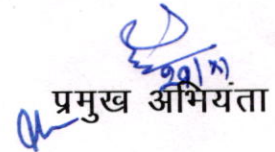 प्रमुख अभियंता